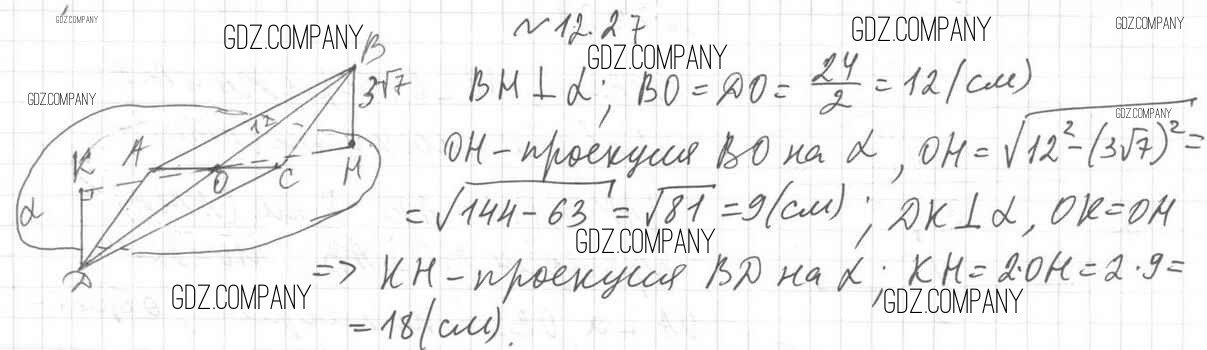 GDZ.COMPANY
N12.27
GDZ.COMPANY
GDZ.COMPANY
GDZ.COMPANY
GDZ.COMPANY
B
3√7
12
K
A
O
C
H
α
D
GDZ.COMPANY
BH ⊥ α; BO = DO = 24/2 = 12 (см)
GDZ.COMPANY
OH – проекция BO на α, OH = √(12² – (3√7)²) =
= √(144 – 63) = √81 = 9 (см); DK ⊥ α, OK = OH
GDZ.COMPANY
=> KH – проекция BD на α; KH = 2·OH = 2·9 =
GDZ.COMPANY
GDZ.COMPANY
= 18 (см).